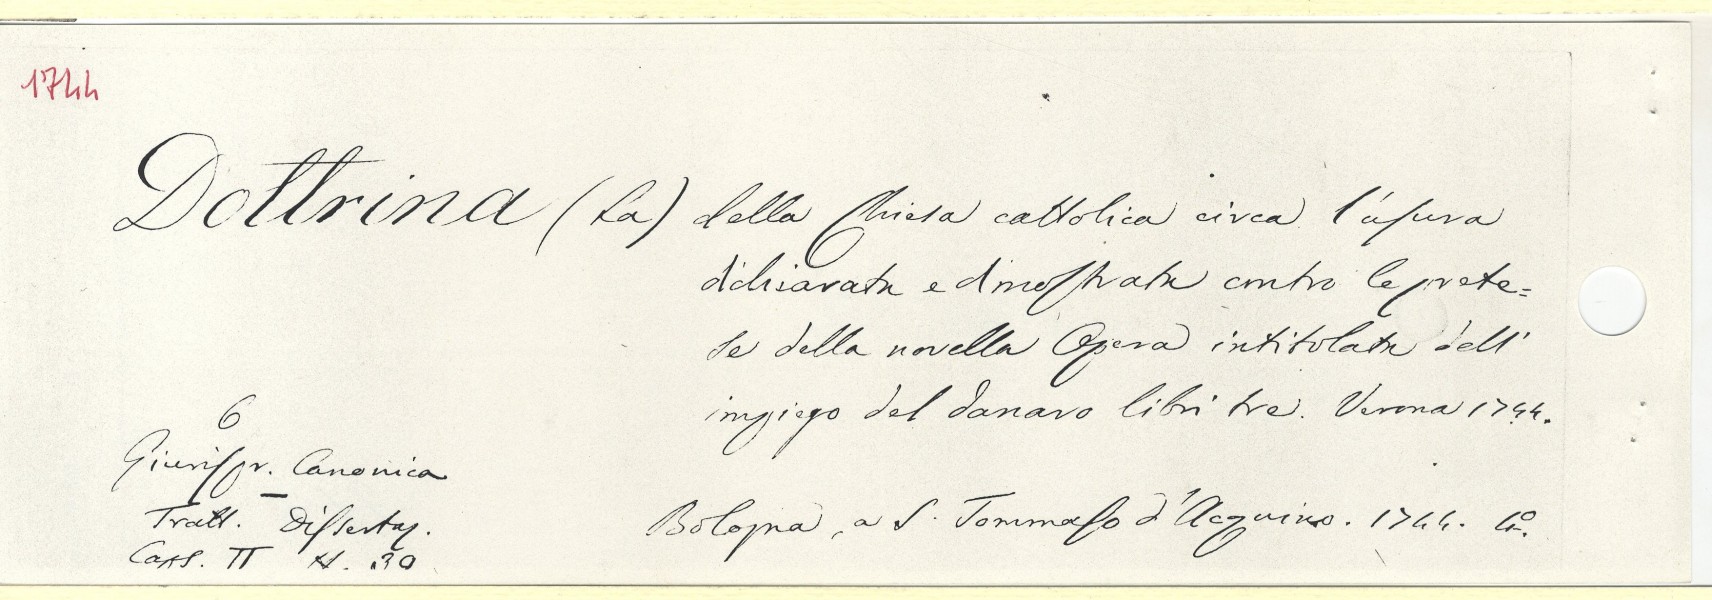 1744
Dottrina (La) della Chiesa cattolica circa l'uſura
dichiarata e dimoſtrata contro le prete=
se della novella Opera intitolata dell'
impiego del danaro libri tre. Verona 1744.
6
Giuriſpr. Canonica
Tratt. - Diſsertaz.
Caps. II N. 30
Bologna, a S. Tommaſo d'Acquino. 1744. 4º.